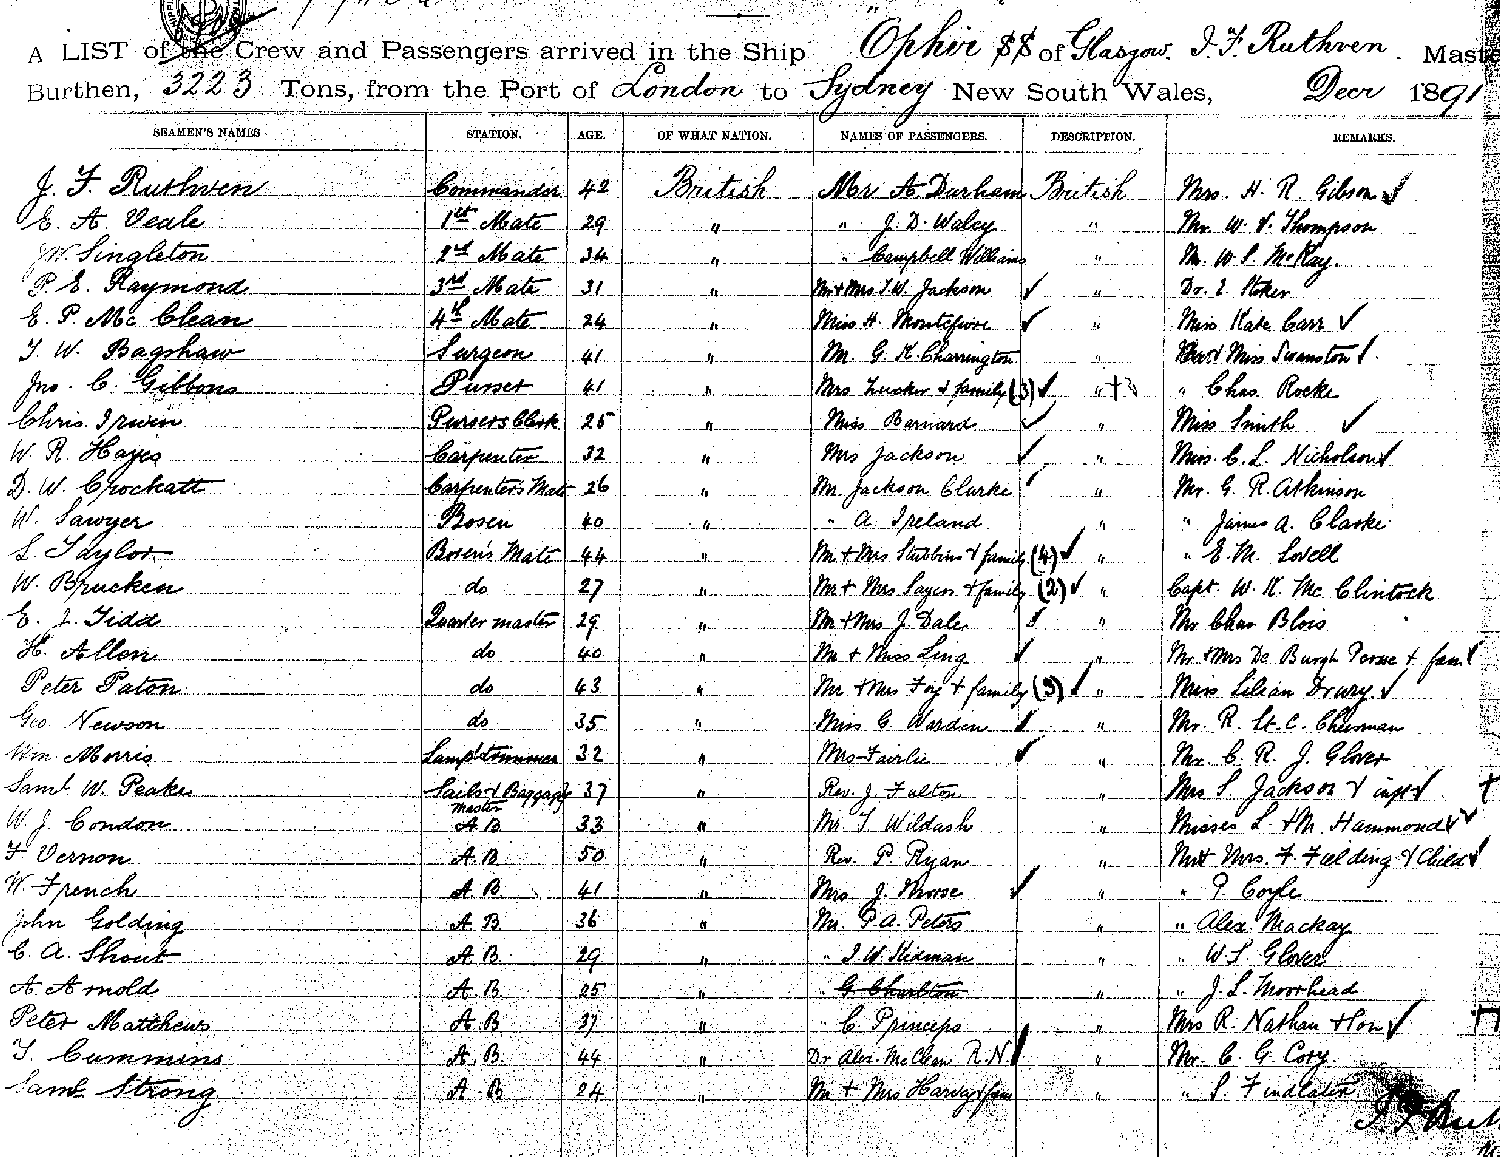 A LIST of the Crew and Passengers arrived in the Ship Ophir SS of Glasgow. J. F. Ruthven. Maste
Burthen, 3223 Tons, from the Port of London to Sydney New South Wales, Decr 1891
SEAMEN'S NAMES STATION. AGE. OF WHAT NATION. NAMES OF PASSENGERS. DESCRIPTION. REMARKS.
J. F. Ruthven Commander 42 British Mr A Durham British Mrs. H. R. Gibson ✓
E. A Veale 1st Mate 29 " " J. D. Waley " Mr W. V. Thompson
J W Singleton 2nd Mate 34 " " Campbell Williams " Mr W. S. McKay.
P. E. Raymond 3rd Mate 31 " Mr + Mrs J. W. Jackson ✓ " Dr. Stoker
E. P. Mc Clean 4th Mate 24 " Miss H. Montefiore ✓ " Miss Kate Carr ✓
T. W. Bagshaw Surgeon 41 " Mr. G. K. Charrington " Miss Swanston ✓
Jno. C. Gibbons Purser 41 " Mrs Lusker & family (3) ✓ " +3 " Chas. Rocke
Chris. Irwin Pursers Clerk 25 " Miss Barnard ✓ " Miss Smith ✓
W. R. Hayes Carpenter 32 " Mrs Jackson ✓ " Miss. C. L. Nicholson ✓
D. W. Crockatt Carpenter's Mate 26 " Mr. Jackson Clarke ✓ " Mr. G. R. Atkinson
W. Sawyer Bosen 40 " " A Ireland " " James A. Clarke
S. Taylor Bosen's Mate 44 " Mr + Mrs Stubbins & family (4) ✓ " " E. M. Lovell
W. Brucken do 27 " Mr + Mrs Sayers + family (2) ✓ " Capt W. K. Mc Clintock
E. J. Tidd Quarter master 29 " Mr + Mrs J. Dale ✓ " Mr Chas Blois
H. Allen do 40 " Mr + Miss Ling ✓ " Mr + Mrs De Burgh Persse + fam ✓
Peter Paton do 43 " Mr + Mrs Foy + family (3) ✓ " Miss Lilian Drury ✓
Geo. Newson do 35 " Miss G. Wardin ✓ " Mr. R. St. C. Chusman
Wm. Morris Lamptrimmer 32 " Mrs Fairlie ✓ " Mr C. R. J. Glover
Saml. W. Peake Sails & Baggage Master 37 " Rev. J Fulton " Mrs S Jackson & inft ✓ +
W. J. Condon A B 33 " Mr T Wildash " Misses L. + M. Hammond ✓✓
F Vernon A. B 50 " Rev. P. Ryan " Mr + Mrs. F Fielding & Child ✓
W. French A. B 41 " Mrs J. Morse ✓ " " P Coyle
John Golding A. B 36 " Mr. P. A. Peters " " Alex Mackay
C. A. Shout A. B. 29 " " J. W. Kidman " " W. S. Glover
A Arnold A. B 25 " " G. Charlton " " J. L. Moorhead
Peter Matthews A. B 37 " " C. Princeps " Mrs R. Nathan + Son ✓
T. Cummins A. B. 44 " Dr Alex. McClean R. N. ✓ " Mr. C. G. Cory
Saml Strong A. B 24 " Mr + Mrs Harvey + fam " " S. Findlater